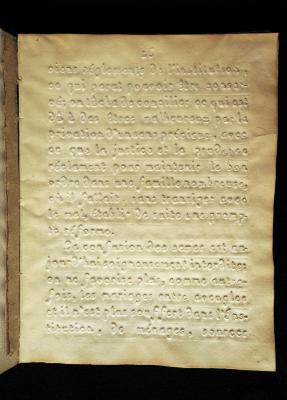 26
ciens réglements de l'institution,
ce qui parut pouvoir être conser-
vé; on tâcha de concilier ce qui est
dû à des êtres malheureux par la
privation d'un sens précieux, avec
ce que la justice et la prudence
réclament pour maintenir le bon
ordre dans une famille nombreuse,
et il fallait, sans transiger avec
le mal, établir de suite une promp-
te réforme.
La confusion des sexes est au-
jourd'hui soigneusement interdite;
on ne favorise plus, comme autre-
fois, les mariages entre aveugles
et il n'est plus souffert dans l'Ins-
titution, de ménages, sources